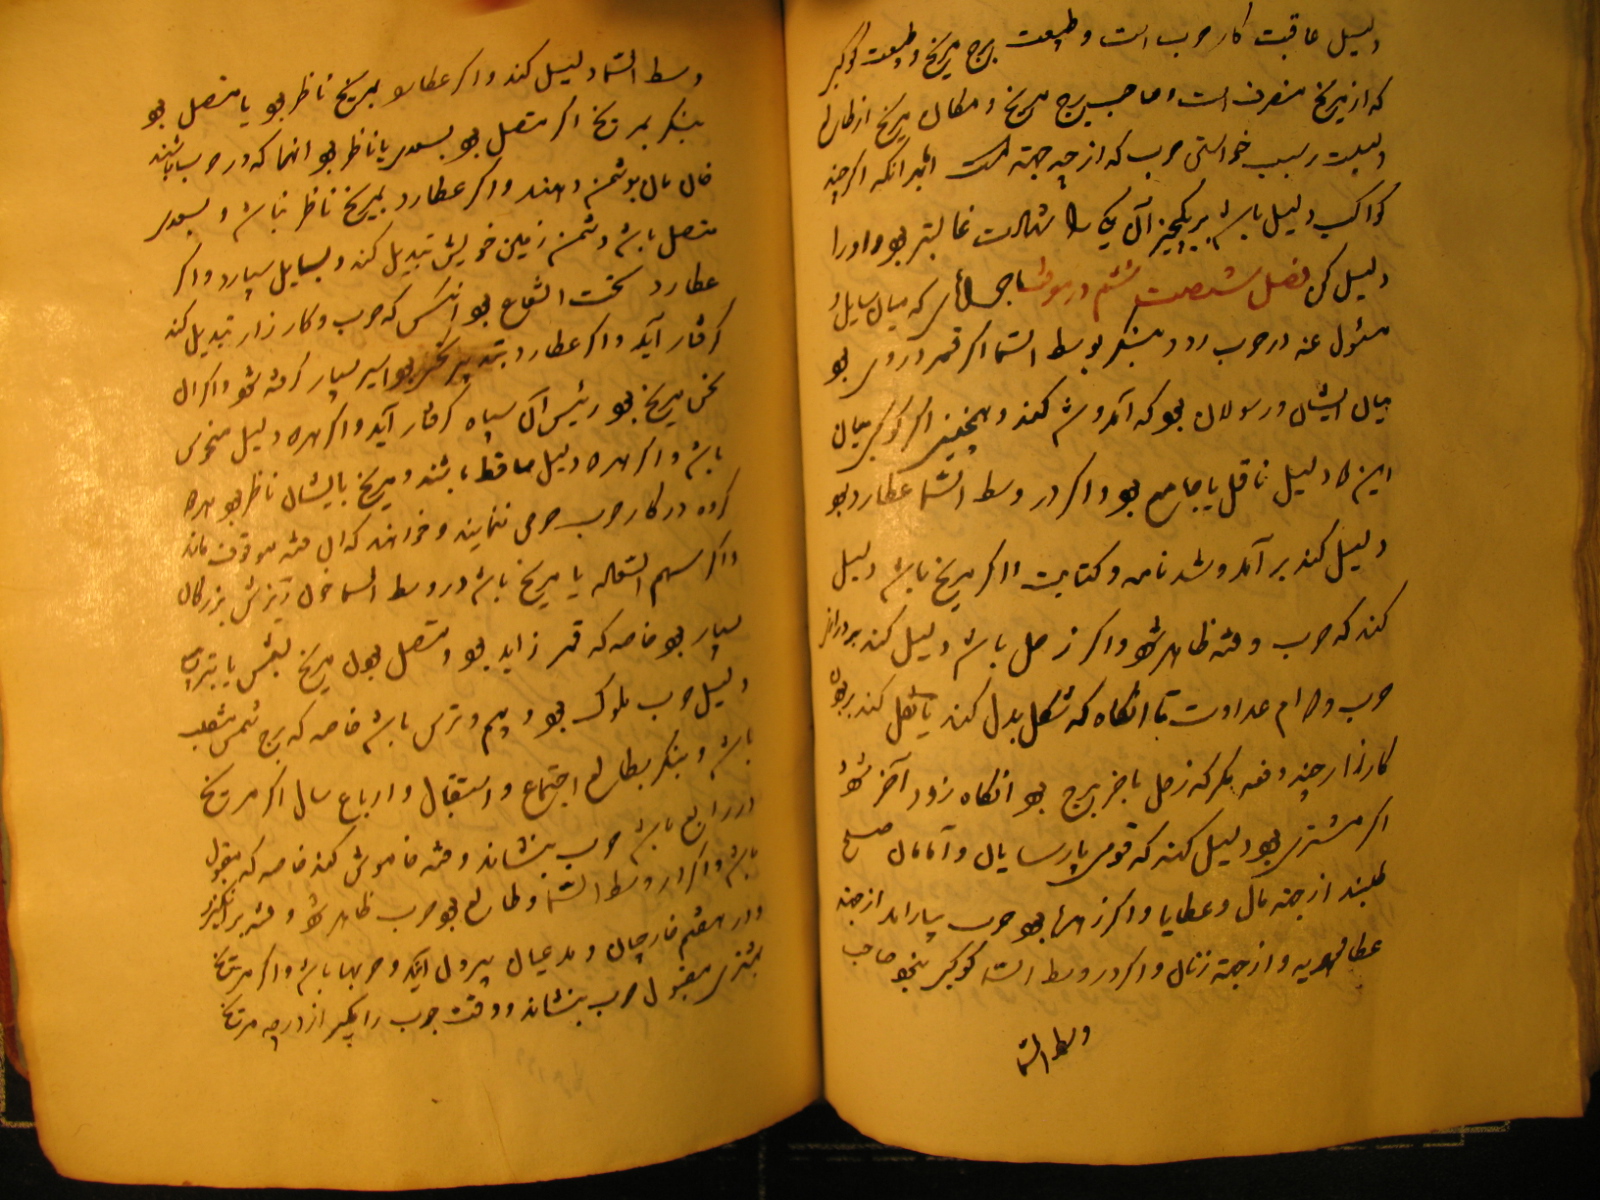 دلیل عاقبت کار حرب است و طبیعت برج مریخ و طبیعت کوکبی
که از مریخ منصرف است و صاحب برج مریخ و مکان مریخ از طالع
دلیلست بر سبب خواستن حرب که از چه جهة است الا آنکه اگر چند
کواکب دلیل باشد بر یکچیز آن یکی را شهادت غالبتر بود او را
دلیل کن فصل شصت ششم در سولی یا جاسوسی که میان سایل و
مسئول عنه در حرب رود بنگر بوسط السّما اگر قمر در وی بو
میان ایشان رسولان بو که آمد و شد کنند و همچنین اگر کوکبی میان
این دو دلیل ناقل یا جامع بو و اگر در وسط السّما عطارد بو
دلیل کند بر آمد و شد نامه و کتابت و اگر مریخ باشد دلیل
کند که حرب و فتنه ظاهر شو و اگر زحل باشد دلیل کند بر درازی
حرب و دوام عداوت تا آنگاه که شکل بدل کند یا نقل کند بر بودن
کارزار چند دفعه مگر که زحل باخر برج بو آنگاه زود آخر شود
اگر مشتری بو دلیل کند که قومی پارسایان و آمنان صلح
طلبند از جهة مال و عطایا و اگر زهره بو حرب باز ایستد از جهة
عطا و هدیه و از جهة زنان و اگر در وسط السّما کوکبی نبو صاحب
وسط السّما
وسط السّما دلیل کند و اگر عطارد بمریخ ناظر بو یا متصل بو
بنگر بمریخ اگر متصل بو بسعدی یا ناظر بو آنها که در حرب باشند
خان مان بدشمن دهند و اگر عطارد بمریخ ناظر نباشد و بسعدی
متصل باشد دشمن زمین خویش تبدیل کند و بسایل سپارد و اگر
عطارد تحت الشعاع بو آنکس که حرب و کارزار تبدیل کند
گرفتار آید و اگر عطارد بتدبیر نحس بو اسیر بسیار گرفته شو و اگر آن
نحس مریخ بو رئیس آن سپاه گرفتار آید و اگر هر دو دلیل منحوس
باشد و اگر هر دو دلیل ساقط باشند و مریخ بایشان ناظر بو هر دو
گروه در کار حرب حرصی ننمایند و خواهند که آن فتنه موقوف ماند
و اگر سهم السّعاده یا مریخ باشد در وسط السما خون ریزش بزرگان
بسیار بو خاصه که قمر زاید بو و متصل بودن مریخ بشمس یا بتربیع
دلیل حرب ملوک بو و بیم و ترس باشد خاصه که برج شمس منقلب
باشد و بنگر بطالع اجتماع و استقبال و ارباع سال اگر مریخ
در رابع باشد حرب بنشاند و فتنه خاموش کند خاصه که مقبول
باشد و اگر در وسط السّما و طالع بو حرب ظاهر شو و فتنه برانگیزد
و در هفتم خارجیان و مدعیان بیرون آیند و حربها باشد و اگر مریخ
بمشتری مقبول حرب بنشاند و وقت حرب را بگیر از درجه مریخ